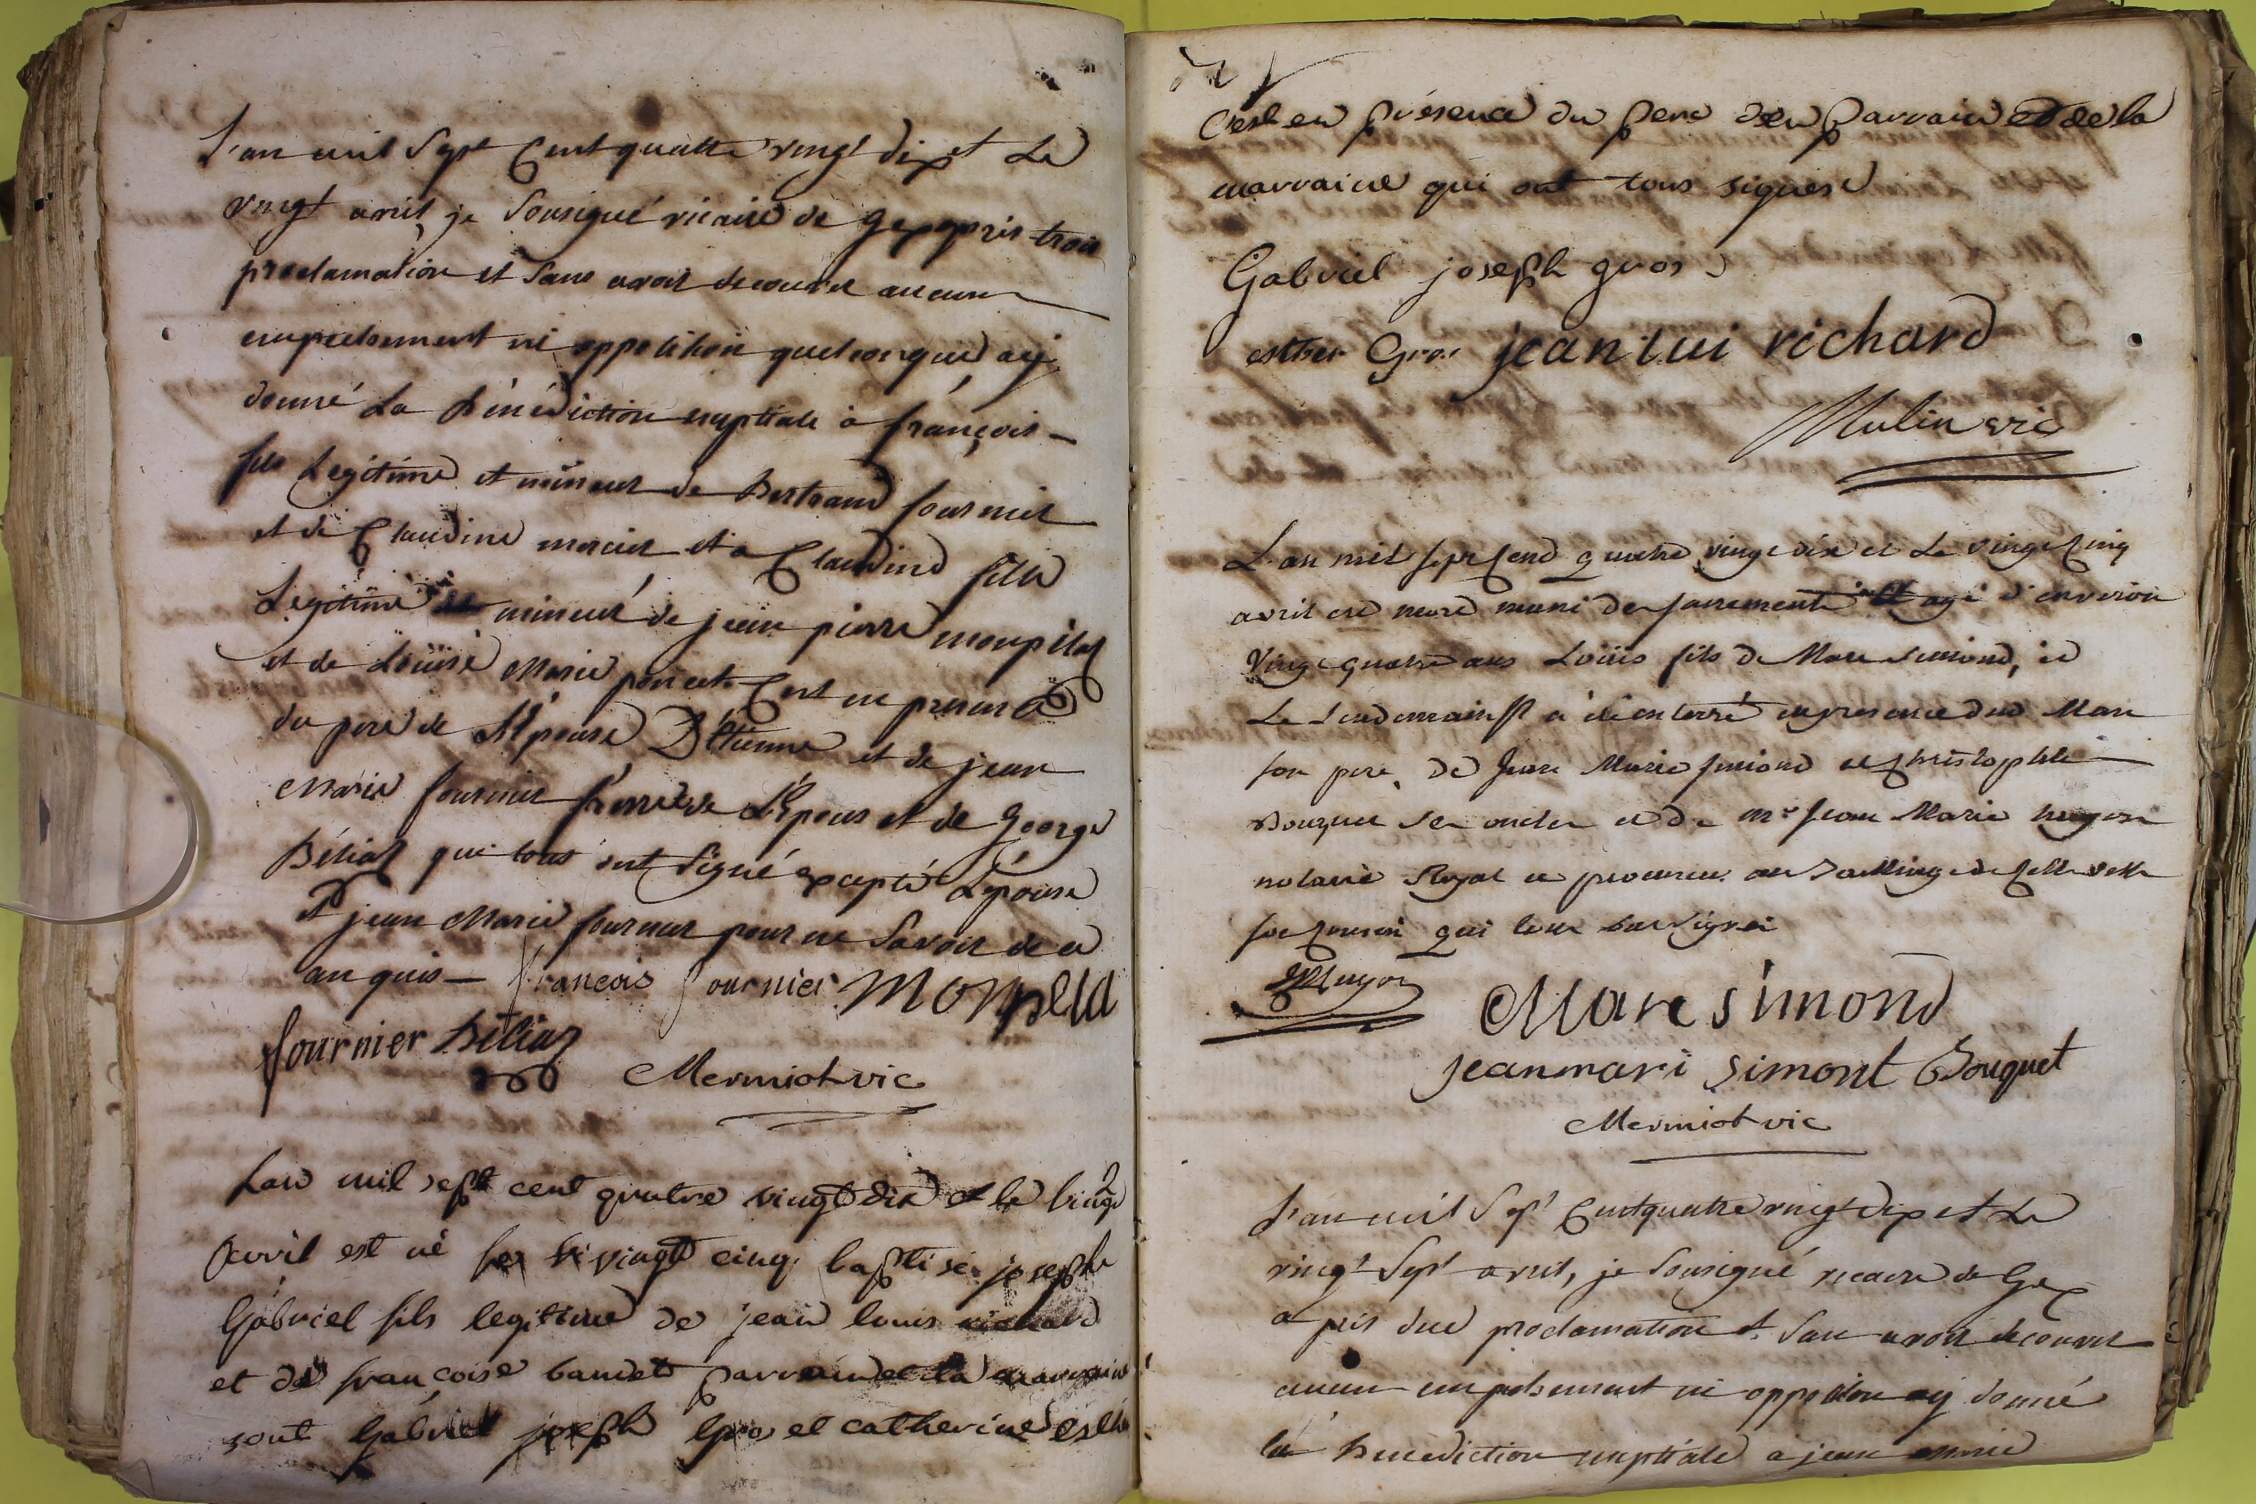 L'an mil sept Cent quatre vingt dix et Le
vingt avril, je sousigné vicaire de gex apris trois
proclamation et sans avoir decouvert aucun
empechement ni oppotition quelconque ay
donné La Bénédiction nuptiale à françois
fils Legitime et mineur de Bertrand fournier
et de Claudine mercier et a Claudine fille
Legitime mineure de jean pierre monpélaz
et de Loüise Marie poncet C'est en presence
du pere de l'Epouse D'Etienne et de jean
Marie fournier frerre de L'Epous et de George
Béliaz qui tous ont signé excepté L'épouse
et jean Marie fournier pour ne savoir de ce
anquis — françois fournier Monpela
fournier Béliaz
Mermiot vic
Lan mil sept cent quatre vingt dix et le vingt
avril est né le vingt cinq baptisé joseph
Gabriel fils legitime de jean louis richard
et de françoise baudet parrain et la marraine
sont Gabriel joseph Gros et catherine esthe
C'est en présence du pere du parrain et de la
marraine qui ont tous signés
Gabriel joseph gros
esther Gros jean lui richard
Mulin vic
L'an mil sept Cend quatre vingt dix et Le vingt Cinq
avril est mord muni des sacrements agé d'environ
vingt quatre ans Loüis fils de Marc simond, et
Le Lendemain il a été enterré en presence dud Marc
son pere, de Jean Marie simond et christophle
Bouquet ses oncles et de mr Jean Marie hugon
notaire Royal et procureur au Bailliage de cette ville
son cousin qui tous ont signés
Hugon Marc simond
jean mari simont Bouquet
Mermiot vic
L'an mil sept Cent quatre vingt dix et Le
vingt sept avril, je sousigné vicaire de Gex
apris une proclamation et sans avoir decouvert
aucun empechement ni oppotition ay donné
la Benediction nuptiale a jean marie